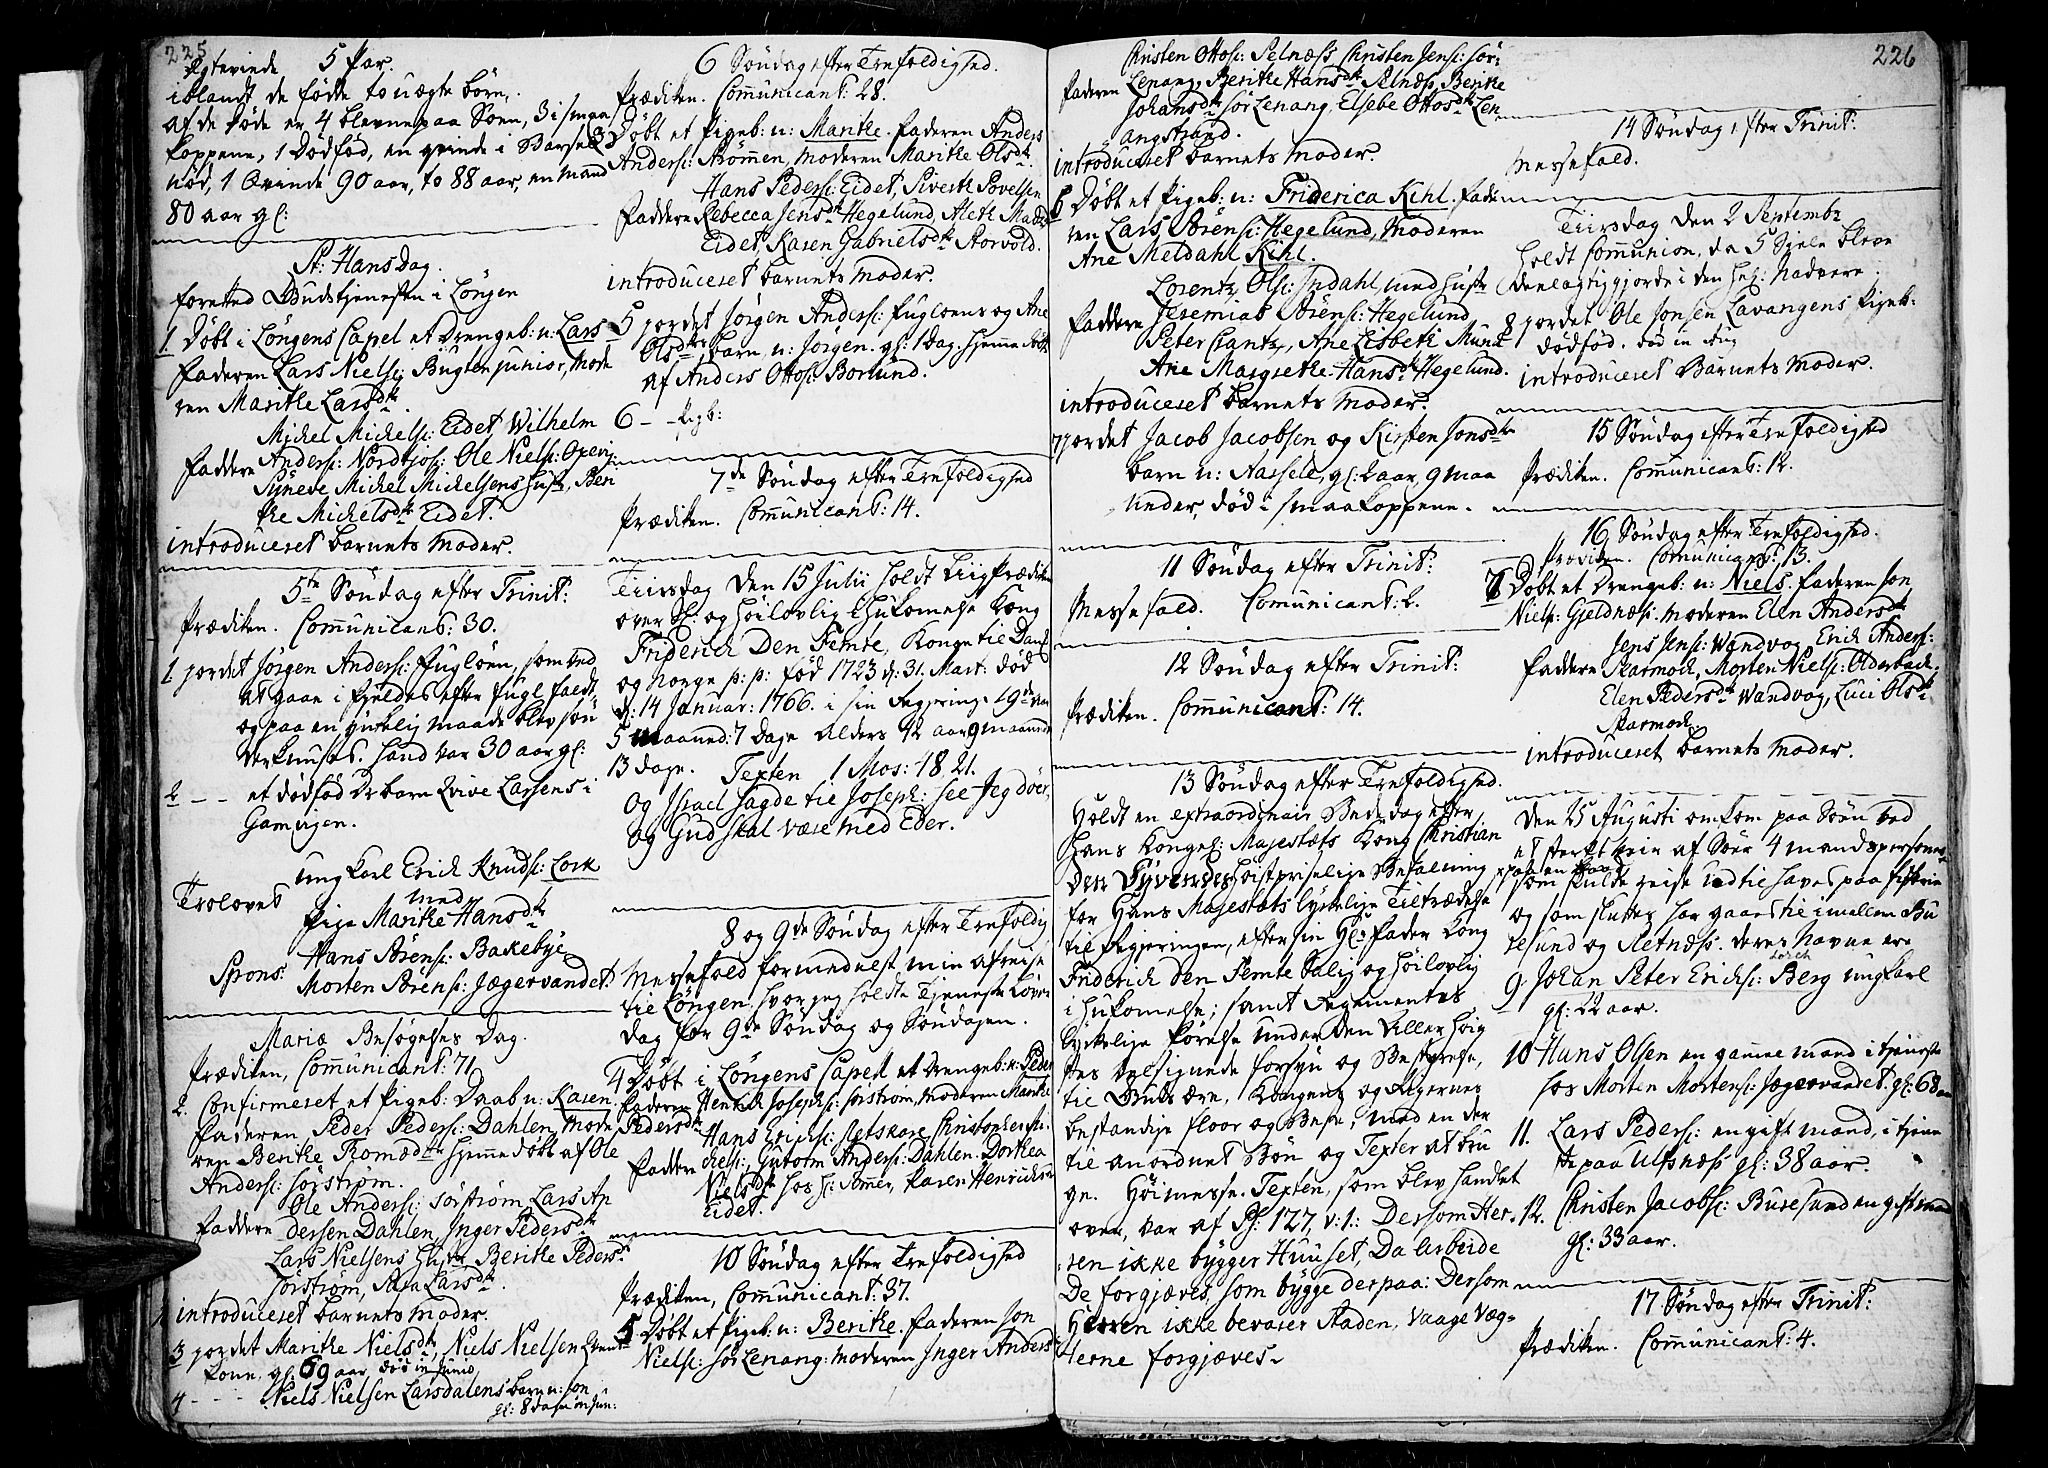 225
Egtevinde 5 Par.
iblandt de fødte to uægte børn,
af de døde er 4 blevne paa Søen, 3 i smaa
koppene, 1 dødfød, en qvinde i Barsel
nød, 1 Qvinde 90 aar, to 88 aar, en mand
80 aar gl:
St: Hans dag.
forretted Gudstjenesten i Løngen
1. Døbt i Løngens Capel et drengeb: n: Lars
faderen Lars Niels: Bugten junior, Mode
ren Maritke Larsdtr.
Michel Michels: Eidet, Wilhelm
Faddere Anders: Nordkjos: Ole Niels:
Syneve Michel Michelsens hustr, Ben
the Michelsdtr Eidet.
introduceret barnets Moder.
5te Søndag efter Trinit:
Prædiken. Communicant: 30.
1 jordet Jørgen Anders: Fugløen, som ved
at gaae i fieldet efter fugl faldt,
og paa en ynkelig maade blev søn
derknuset. hand var 30 aar gl:
2 - - et dødfød Dr barn Qvive Larsens i
Gamvigen.
ung karl Erich Knuds: Lork
Trolovet med
Pige Maritke Hansdtr
Hans Sørens: Bakkebye
Spons: Morten Sørens: Jægervandet.
Mariæ Besøgelses Dag.
Prædiken, Communicant: 71
2. Confirmeret et Pigeb: Daab n: Karen.
faderen Peder Peders: Dahlen, Mode
ren Beritke Thomædtr hjemmedøbt af Ole
Anders: Sørstrøm.
Ole Anders: Sørstrøm, Lars An
Faddere dersen Dahlen, Inger Pedersdtr
Lars Nielsens Hustr, Beritke Pedersdtr
Sørstrøm, Larsdtr.
introduceret barnets Moder.
3 jordet Maritke Nielsdtr, Niels Nielsen
kone, gl: 69 aar død in Junio
4 - - - Niels Nielsen Larsdalens barn n: Jon
gl: 8 dage
6 Søndag efter Trefoldighed.
Prædiken. Communicant: 28.
3 Døbt et Pigeb: n: Maritke. faderen Anders
Anders: Strømmen, moderen Maritke Olsdtr.
Hans Peders: Eidet, Sivert Povelsen
Faddere Rebecca Jensdtr Hegelund, Aleth Mads
Eidet, Karen Gabrielsdtr Storvold.
introduceret barnets Moder.
5 jordet Jørgen Anders: Fugløens og Ane
Olsdtrs barn n: Jørgen. gl: 1 Dag. hjemmedøbt
af Anders Ottos: Borlund.
6 - - Pigb:
7de Søndag efter Trefoldighed
Prædiken. Communicant: 14.
Tiirsdag den 15 Julii holdt Liigprædiken
over Sl: og høilovlig ihukommelse Kong
Friderich Den Femte, Konge til Danm
og Norge p: p: fød 1723 d: 31. Mart: død
d: 14 Januar: 1766. i sin Regjerings 19de aar
5 maaned: 7 Dage alders 42 aar 9 maaneder
13 dage. Texten 1 Mos: 48. 21.
Og Israel sagde til Joseph: See Jeg døer,
og Gud skal være med Eder.
8 og 9de Søndag efter Trefoldig
Messefald formedelst min afreise
til Løngen, hvor jeg holdte Tjeneste Løver
dag før 9de Søndag og Søndagen.
4 Døbt i Løngens Capell et drengeb: n: Peder
faderen Henrich Josephs: Sørstrøm, moderen Maritke
Pedersdtr
Hans Erichs: Christopher
Faddere Guttorm Anders: Dahlen: Dorthea
Nielsdtr hos hr: Sommer, Karen Henrichsdtr
Eidet.
10 Søndag efter Trefoldighed
Prædiken, Communicant: 37.
5 Døbt et Pigeb: n: Beritke. faderen Jon
Niels: Sør Lenang: moderen Inger Andersdtr
226
Christen Ottos: Selnæss, Christen Jens: Sør
Faderen Lenang, Beritke Hansdtr Selnæss, Beritke
Johansdtr Sør Lenang, Elsebe Ottosdtr Len
angstrand.
introduceret barnets Moder.
6 Døbt et Pigeb: n: Friderica Kihl. fade
ren Lars Sørens: Hegelund, Moderen
Ane Meldahl Kihl.
Lorentz Ols: Indahl med Hustr
Faddere Jeremias Sørens: Hegelund
Peter Crantz, Ane Lisbeth Munk
Ane Margrethe Hansdtr Hegelund.
introduceret barnets Moder.
7 jordet Jacob Jacobsen og Kirsten Jonsdtr
barn n: gl: 2 aar, 9 maa
neder, død i smaakoppene.
11 Søndag efter Trinit:
Messefald. Communicant: 2.
12 Søndag efter Trinit:
Prædiken. Communicant: 14.
13 Søndag efter Trefoldighed.
Holdt en extraordinair Bededag efter
Hans Kongel: Majestæts Kong Christian
den Syvendes høistpriselige Befalning
for Hans Majestæts lykkelige Tiltrædelse
til Regjeringen, efter sin Hr: Fader Kong
Friderich den Femte Salig og Høilovlig
i hukommelse; samt Regimentets
lykkelige førelse under den allerhøig
stes velsignede forsyn og Bestyrelse,
til Guds ære, Kongens og Rigernes
bestandige floor og Beste; med en der
til anordnet Bøn og Texter at bru
ge. Høimesse-Texten, som blev handlet
over, var af Ps: 127. v: 1: Dersom Her-
ren ikke bygger Huuset, Da Arbeide
De forgjæves, som bygge derpaa: Dersom
Herren ikke bevarer Staden, Vaage Væg-
terne forgjæves.
14 Søndag efter Trinit:
Messefald.
Tiirsdag den 2 Septembr
holdt Communion, da 5 Sjele bleve
deelagtiggjorde i den hel: Nadvere.
8 jordet Ole Jonsen Lavangens Pigeb:
dødfød. død in Aug
introduceret Barnets Moder.
15 Søndag efter Trefoldighed
Prædiken. Communicant: 12.
16 Søndag efter Trefoldighed.
Prædiken. Communicant: 13.
7 Døbt et Drengeb: n: Niels. faderen Jon
Niels: Gjeldnæs: moderen Elen Andersdtr
Jens Jens: Wandvog, Erich Anders:
Faddere Skarmoch, Morten Niels: Olderbach.
Elen Pedersdtr Wandvog, Luci Olsdtr
Skarmoch.
introduceret barnets Moder.
Den 25 Augusti omkom paa Søen ved
et sterkt veir af Sør 4 mandspersoner
som skulde reise ud til havet paa fiskerie
og som sluttes har gaaet til imellem Bu
resund og Retnæss. deres Navne ere
9. Johan Peter Erichs: Berg ungkarl
gl: 22 aar.
10 Hans Olsen en gammel mand i tjeneste
hos Morten Mortens: Jægervandet. gl: 68 aar
11. Lars Peders: en gift mand, i tjene
ste paa Ulfsnæs gl: 38 aar.
12. Christen Jacobs: Buresund en gift mand
gl: 33 aar.
17 Søndag efter Trinit:
Prædiken. Communicant: 4.